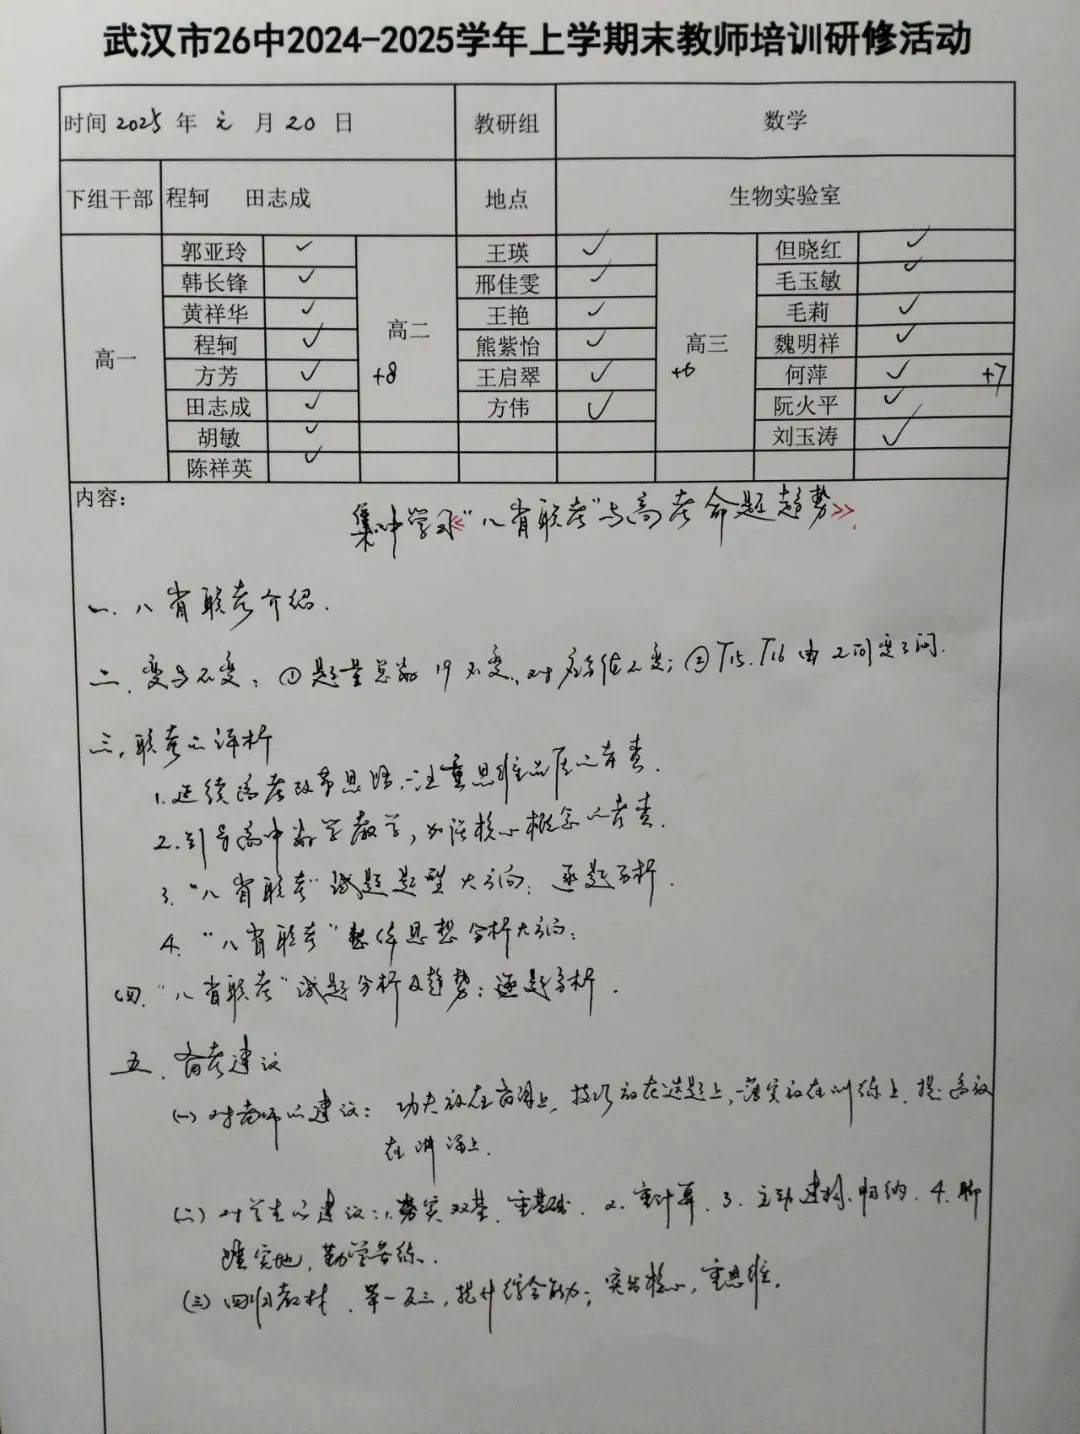 武汉市26中2024-2025学年上学期末教师培训研修活动
时间 2025 年 元 月 20 日 教研组 数学
下组干部 程轲 田志成 地点 生物实验室
高一 高二 +8 高三 +6 +7
郭亚玲 ✓ 王瑛 ✓ 但晓红 ✓
韩长锋 ✓ 邢佳雯 ✓ 毛玉敏 ✓
黄祥华 ✓ 王艳 ✓ 毛莉 ✓
程轲 ✓ 熊紫怡 ✓ 魏明祥 ✓
方芳 ✓ 王启翠 ✓ 何萍 ✓
田志成 ✓ 方伟 ✓ 阮火平 ✓
胡敏 ✓ 刘玉涛 ✓
陈祥英 ✓
内容:
集中学习《"八省联考"与高考命题趋势》
一、八省联考介绍.
二、变与不变:①题量总数19不变、对应分值不变;②T15、T16由2问变3问.
三、联考的评析
1.延续高考改革思路,注重思维品质的考查.
2.引导高中数学教学,加强核心概念的考查.
3."八省联考"试题题型大方向:逐题分析.
4."八省联考"整体思想分析大方向:
四."八省联考"试题分析及趋势:逐题分析.
五、备考建议
(一)对老师的建议:功夫放在备课上,技巧放在选题上,落实放在训练上,提高放
在讲评上.
(二)对学生的建议:1.夯实双基,重基础. 2.重计算. 3.主动建构、归纳. 4.脚
踏实地,勤学苦练.
(三)回归教材、举一反三,提升综合能力;突出核心,重思维.